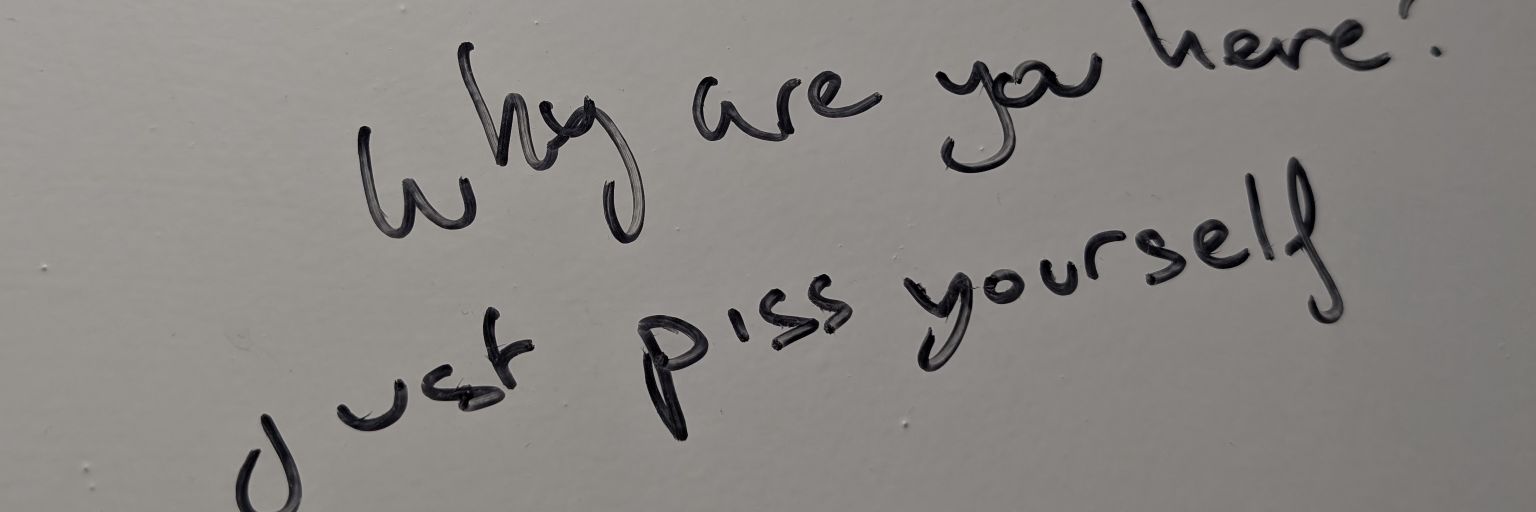 Why are you here?
Just piss yourself